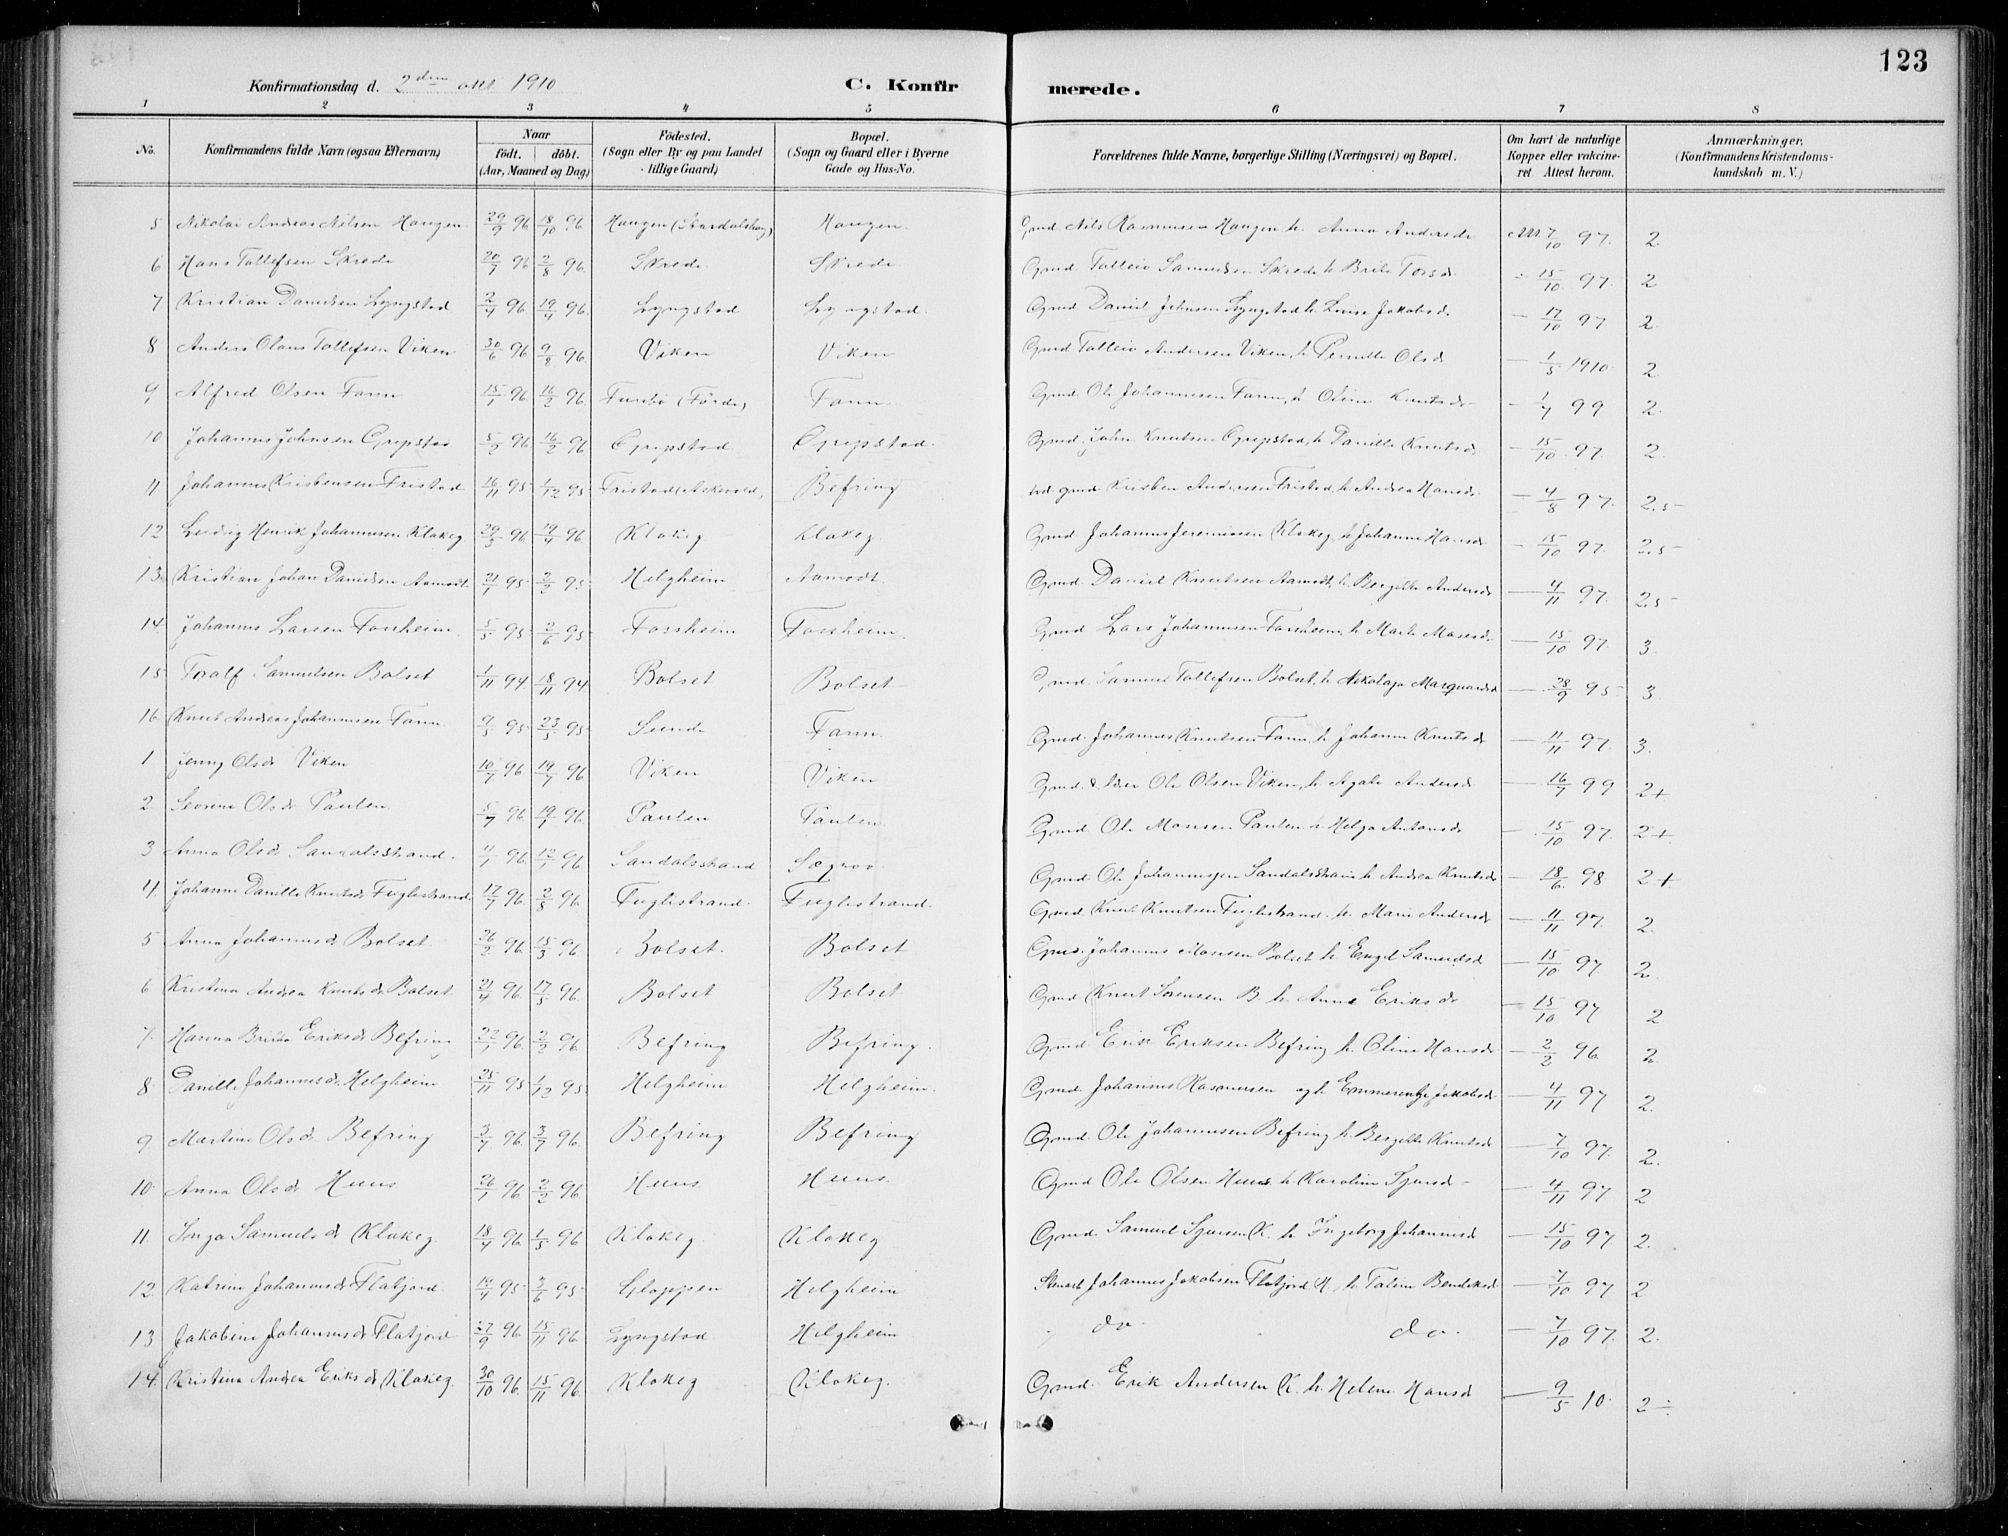 123
Konfirmationsdag d. 2den okt 1910
C. Konfirmerede.
1 2 3 4 5 6 7 8
No. Konfirmandens fulde Navn (ogsaa Efternavn) Naar født. døbt. (Aar, Maaned og Dag) Födested. (Sogn eller By og paa Landet tillige Gaard) Bopæl. (Sogn og Gaard eller i Byerne Gade og Hus-No. Forældrenes fulde Navne, borgerlige Stilling (Næringsvei) og Bopæl. Om havt de naturlige Kopper eller vakcineret Attest herom. Anmærkninger. (Konfirmandens Kristendomskundskab m. V.)
5 Nikolai Andreas Nilsen Haugen 29/9 96 18/10 96 Haugen Haugen Gmd. Nils Rasmussen Haugen h. Anna Andersd. Att 7/10 97. 2
6 Hans Tollefsen Skrede 20/7 96 2/8 96. Skrede Skrede Gmd. Tolleiv Samuelsen Skrede h. Brite Torsd. - 15/10 97. 2
7 Kristian Danielsen Lyngstad 2/4 96 19/4 96. Lyngstad Lyngstad. Gmd Daniel Johnsen Lyngstad h. Lovise Jakobsd. - 17/10 97 2.
8 Anders Olaus Tollefsen Viken 30/6 96 9/8 96. Viken Viken Gmd. Tolleiv Andersen Viken, h. Pernille Olsd. - 1/5 1910. 2.
9 Alfred Olsen Fann 15/1 96 16/2 96. (Förde) Fann. Gmd Ole Johannesen Fann, h. Oline Knutsd. - 1/7 99 2.
10 Johannes Johnsen Grepstad 5/2 96 16/2 96 Grepstad. Grepstad. Gmd. John Knutsen Grepstad, h. Danille Knutsd. - 15/10 97. 2.
11 Johannes Kristensen Fristad 16/11 95 1/12 95 Fristad (Askevold) Befring gmd. Kristen Andersen Fristad, h. Andrea Hansd. - 4/8 97. 2,5
12 Ludvig Henrik Johannesen Klakeg 29/3 96 19/4 96. Klakeg Klakeg Gmd Johannes Jeremiasen Klakeg, h. Johanne Hansd. - 15/10 97. 2.5
13 Kristian Johan Danielsen Aamodt 21/1 95 2/2 95 Helgheim Aamodt Gmd. Daniel Knutsen Aamodt, h. Bergitte Andersd. - 4/11 97. 2,5
14 Johannes Larsen Fossheim 5/5 95 2/6 95 Fossheim Fossheim. Gmd Lars Johannesen Fossheim, h. Marte Monsd. - 15/10 97. 3.
15 Toralf Samuelsen Bolset 1/11 94. 18/11 94. Bolset Bolset Gmd. Samuel Tollefsen Bolset, h. Nikolaja Marquardsd. - 28/9 95 3.
16 Knut Andreas Johannesen Fann 9/5 95 23/5 95 Sunde Fann. Gmd. Johannes Knutsen Fann, h. Johanne Knutsd. - 11/11 97. 3.
1 Jenny Olsd. Viken 10/7 96. 19/7 96 Viken Viken Gmd. & lærer Ole Olsen Viken, h. Agate Andersd. - 16/7 99 2+
2 Severine Olsd. Paulen 5/7 96. 19/7 96. Paulen Paulen Gmd. Ole Monsen Paulen h. Helga Antonsd. - 15/10 97. 2+
3 Anna Olsd. Sandalsstrand. 4/1 96. 12/1 96. Sandalsstrand Søgrov Gmd Ole Johannesen Sandalsstrand h. Andrea Knutsd. - 18/6. 98 2+
4. Johanne Danille Knutsd. Fuglestrand 17/7 96. 2/8 96 Fuglestrand. Fuglestrand. Gmd Knut Knutsen Fuglestrand. h. Marie Andersd. - 11/11 97. 2.
5 Anna Johannesd. Bolset 26/2 96. 15/3 96 Bolset. Bolset Gmd. Johannes Monsen Bolset h. Engel Samuelsd. - 15/10 97. 2
6 Kristina Andrea Knutsd. Bolset 21/4 96. 17/5 96. Bolset Bolset Gmd Knut Sørensen B. h. Anne Eriksd. - 15/10 97 2
7. Hanna Eriksd. Befring 22/1 96. 2/2 96. Befring Befring. Gmd Erik Eriksen Befring h. Oline Hansd. - 2/2 96. 2
8 Danille Johannesd. Helgheim 25/11 95 1/12 95 Helgheim Helgheim. Gmd. Johannes Rasmussen og h. Emmerentze Jakobsd. - 4/11 97 2.
9 Martine Olsd. Befring 3/7 96. 3/7 96. Befring Befring Gmd. Ole Johannesen Befring h. Bergitte Knutsd. - 7/10 97. 2.
10. Anna Olsd. Huus 26/1 96. 2/2 96. Huus Huus. Gmd Ole Olsen Huus h. Karoline Sjursd. - 4/11 97 2
11. Inga Samuelsd. Klakeg. 18/4 96. 1/5 96 Klakeg. Klakeg Gmd. Samuel Sjursen K. h. Ingeborg Johannesd. - 15/10 97. 2.
12. Katrine Johannesd. Flatjord 19/4 95 3/6 95 Gloppen Helgheim Johannes Jakobsen Flatjord H., h. Taline Bendiksd. - 7/10 97 2
13 Jakobine Johannesd. Flatjord 27/9 96. 15/11 96 Lyngstad Helgheim do. do. - 7/10 97. 2.
14. Kristina Andrea Eriksd. Klakeg. 30/10 96. 15/11 96. Klakeg Klakeg. Gmd. Erik Andersen K. h. Helene Hansd. - 9/5 10. 2÷